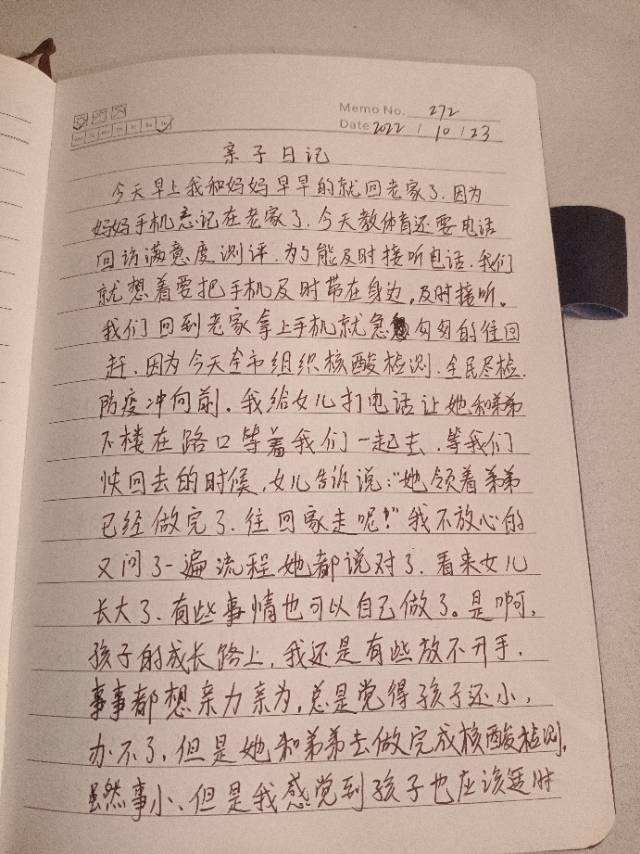 Memo No. 272
Mo Tu We Th Fr Sa Su
Date 2022 / 10 / 23
亲子日记
今天早上我和妈妈早早的就回老家了.因为
妈妈手机忘记在老家了.今天教体育还要电话
回访满意度测评.为了能及时接听电话.我们
就想着要把手机及时带在身边,及时接听。
我们回到老家拿上手机就急匆匆的往回
赶.因为今天全市组织核酸检测.全民尽检.
防疫冲向前.我给女儿打电话让她和弟弟
下楼在路口等着我们一起去.等我们
快回去的时候,女儿告诉说:“她领着弟弟
已经做完了.往回家走呢!”我不放心的
又问了一遍流程她都说对了.看来女儿
长大了.有些事情也可以自己做了。是啊,
孩子的成长路上,我还是有些放不开手.
事事都想亲力亲为,总是觉得孩子还小,
办不了,但是她和弟弟去做完成核酸检测.
虽然事小、但是我感觉到孩子也应该适时